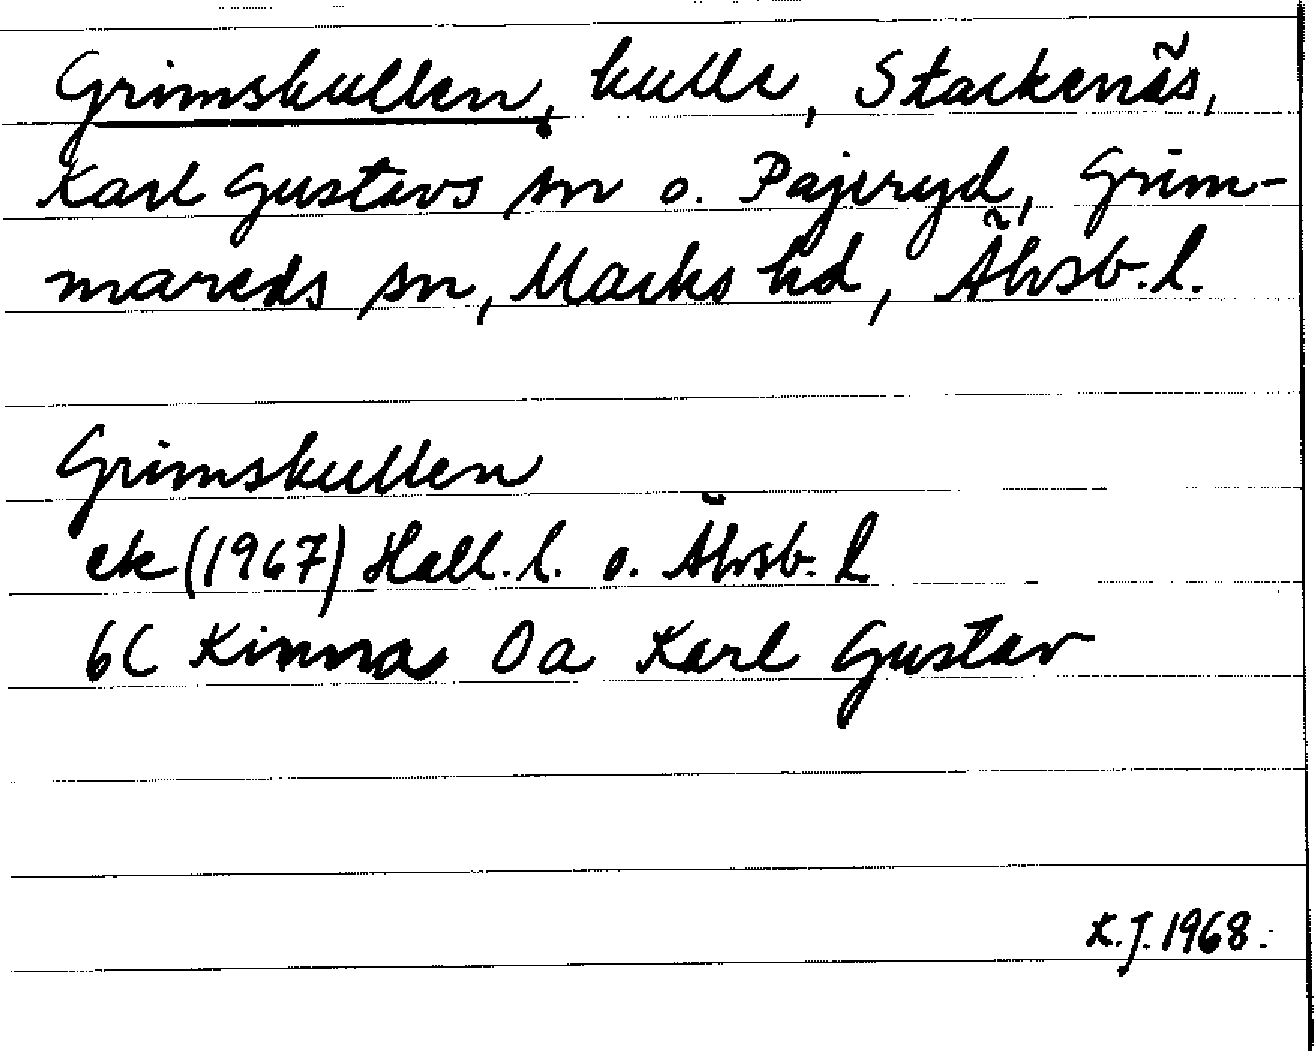 Grimskullen, kulle, Stackenäs,
Karl Gustavs sn o. Pajeryd, Grim-
mareds sn, Marks hd, Älvsb. l.
Grimskullen
ek (1967) Hall. l. o. Älvsb. l.
6C Kinna 0a Karl Gustav
K.J. 1968.